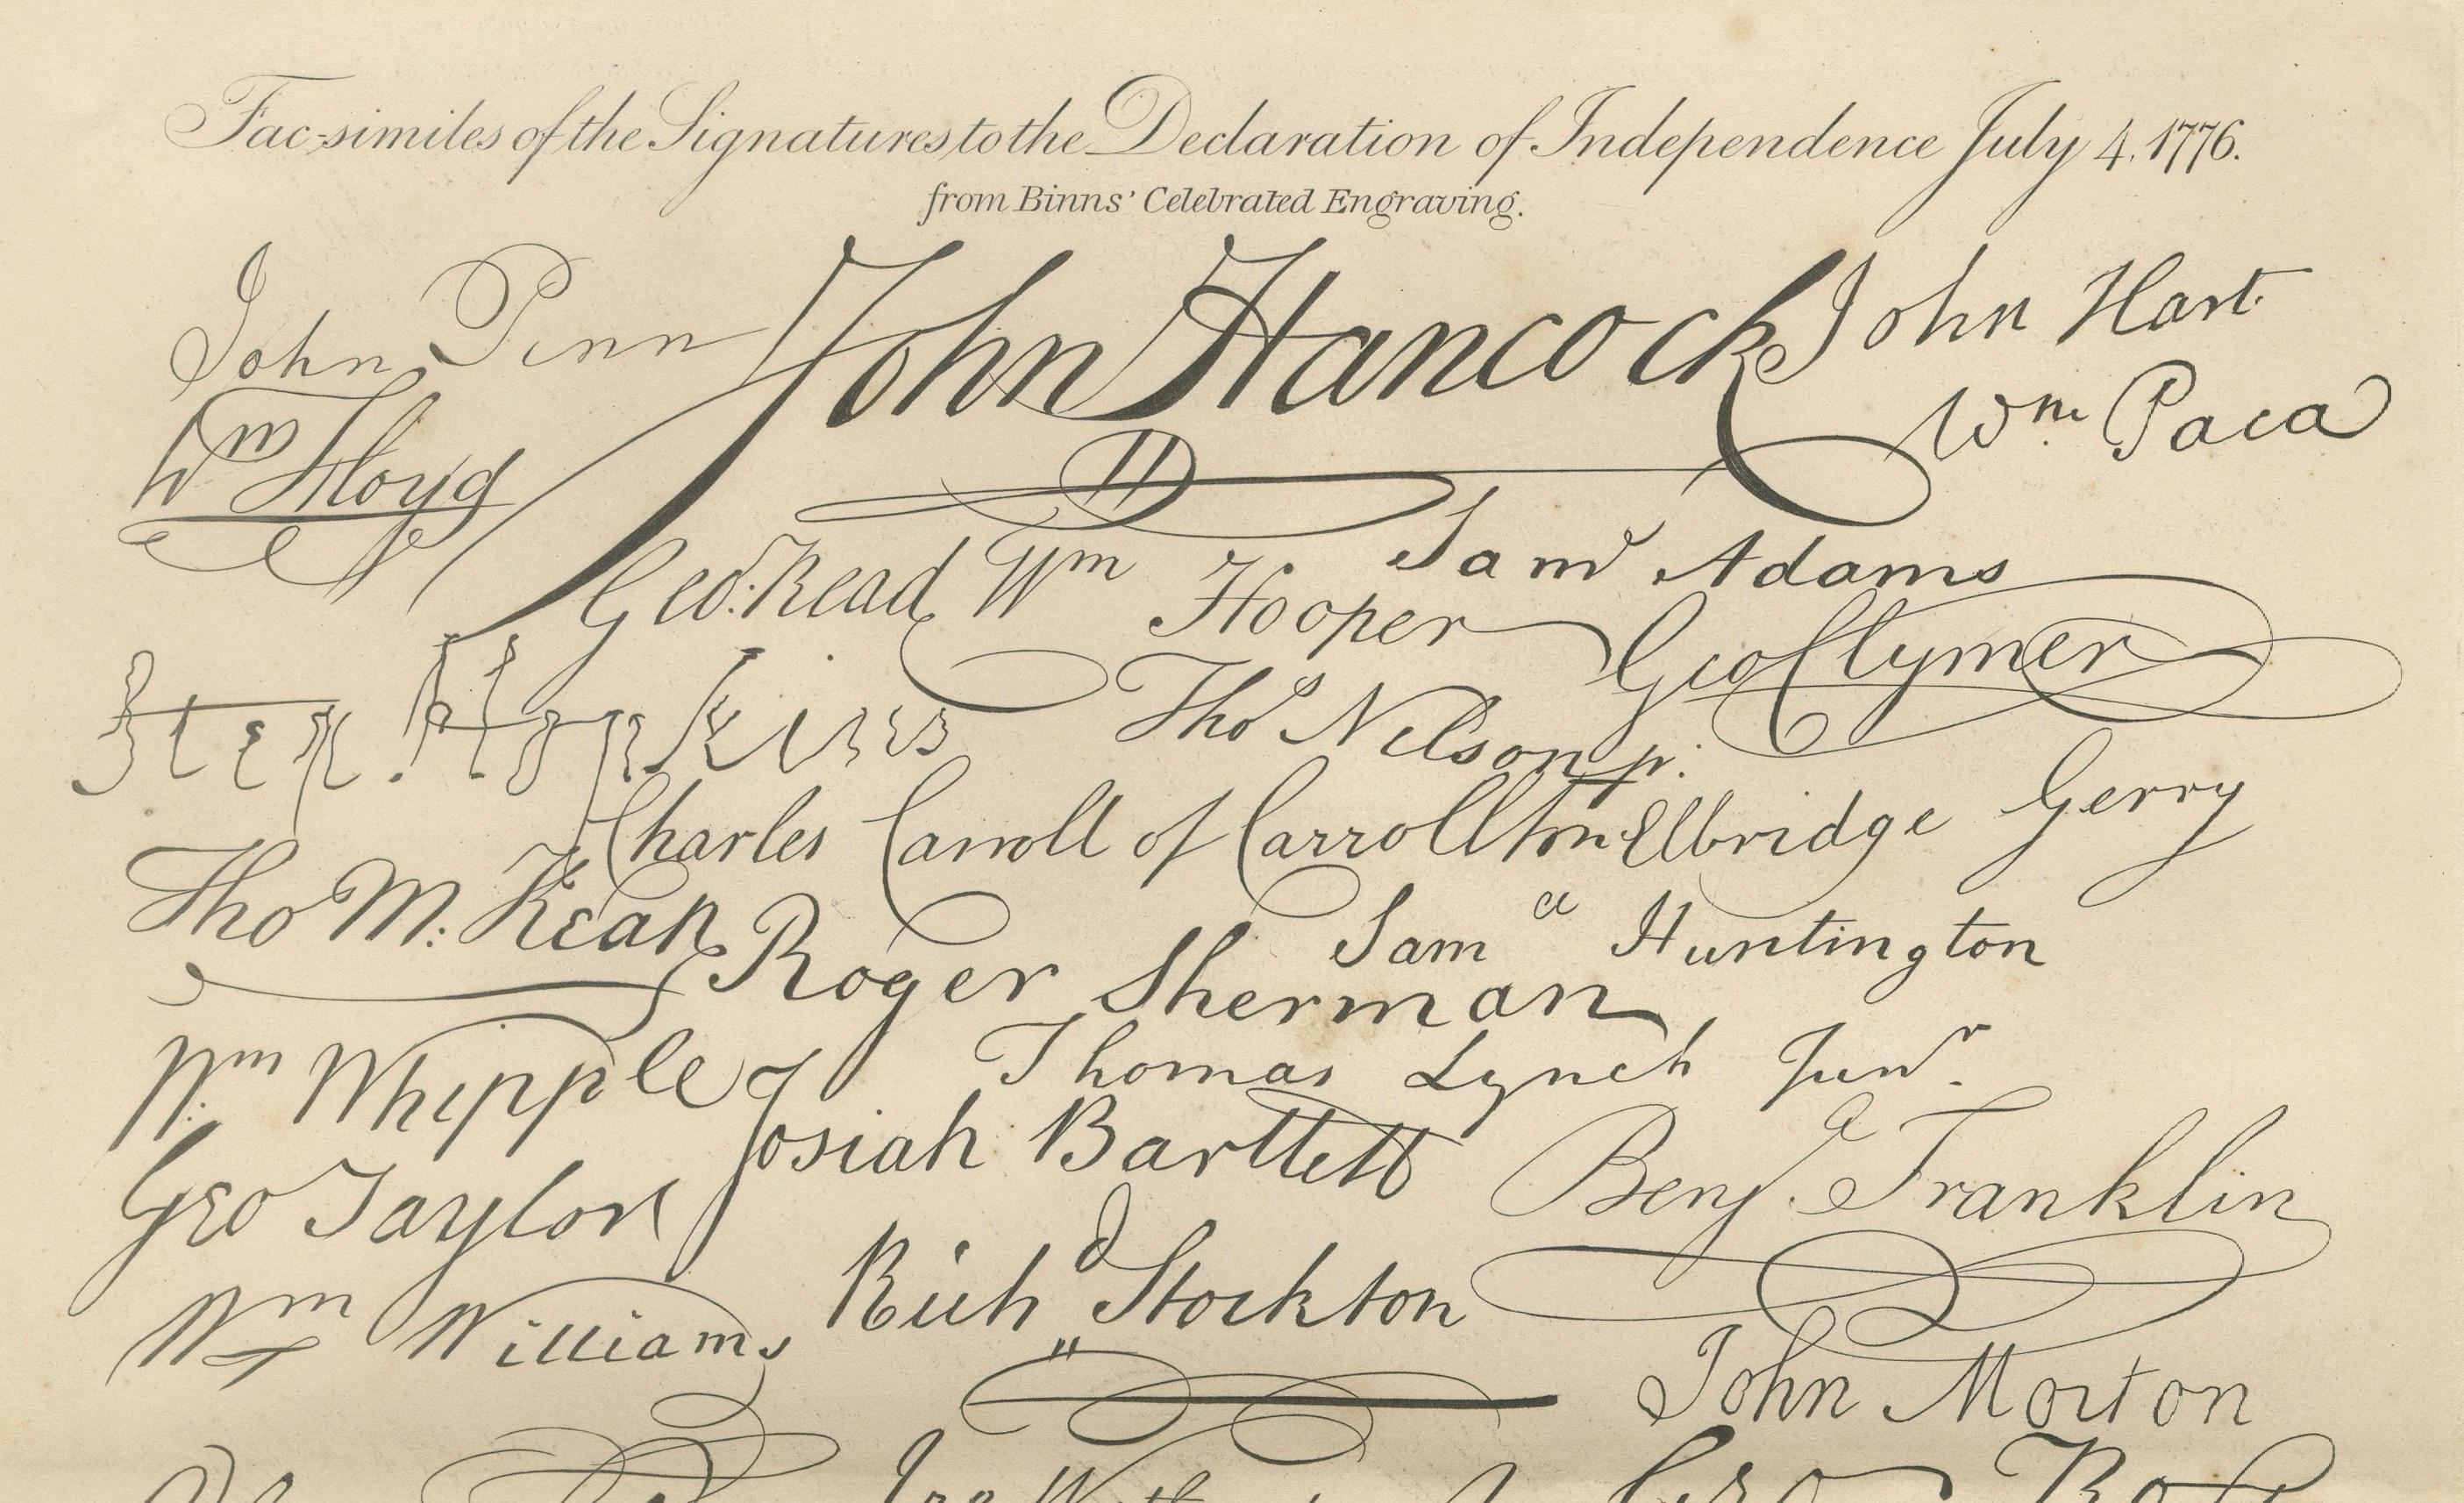 Fac-similes of the Signatures to the Declaration of Independence July 4. 1776.
from Binns' Celebrated Engraving.
John Penn
John Hancock
John Hart
Wm Floyd
Wm Paca
Saml Adams
Geo. Read
Wm Hooper
Geo Clymer
Step. Hopkins
Thos Nelson jr.
Charles Carroll of Carrollton
Elbridge Gerry
Tho M: Kean
Saml Huntington
Roger Sherman
Wm Whipple
Thomas Lynch Junr.
Josiah Bartlett
Benj. Franklin
Geo Taylor
Richd Stockton
Wm Williams
John Morton
Geo Ross